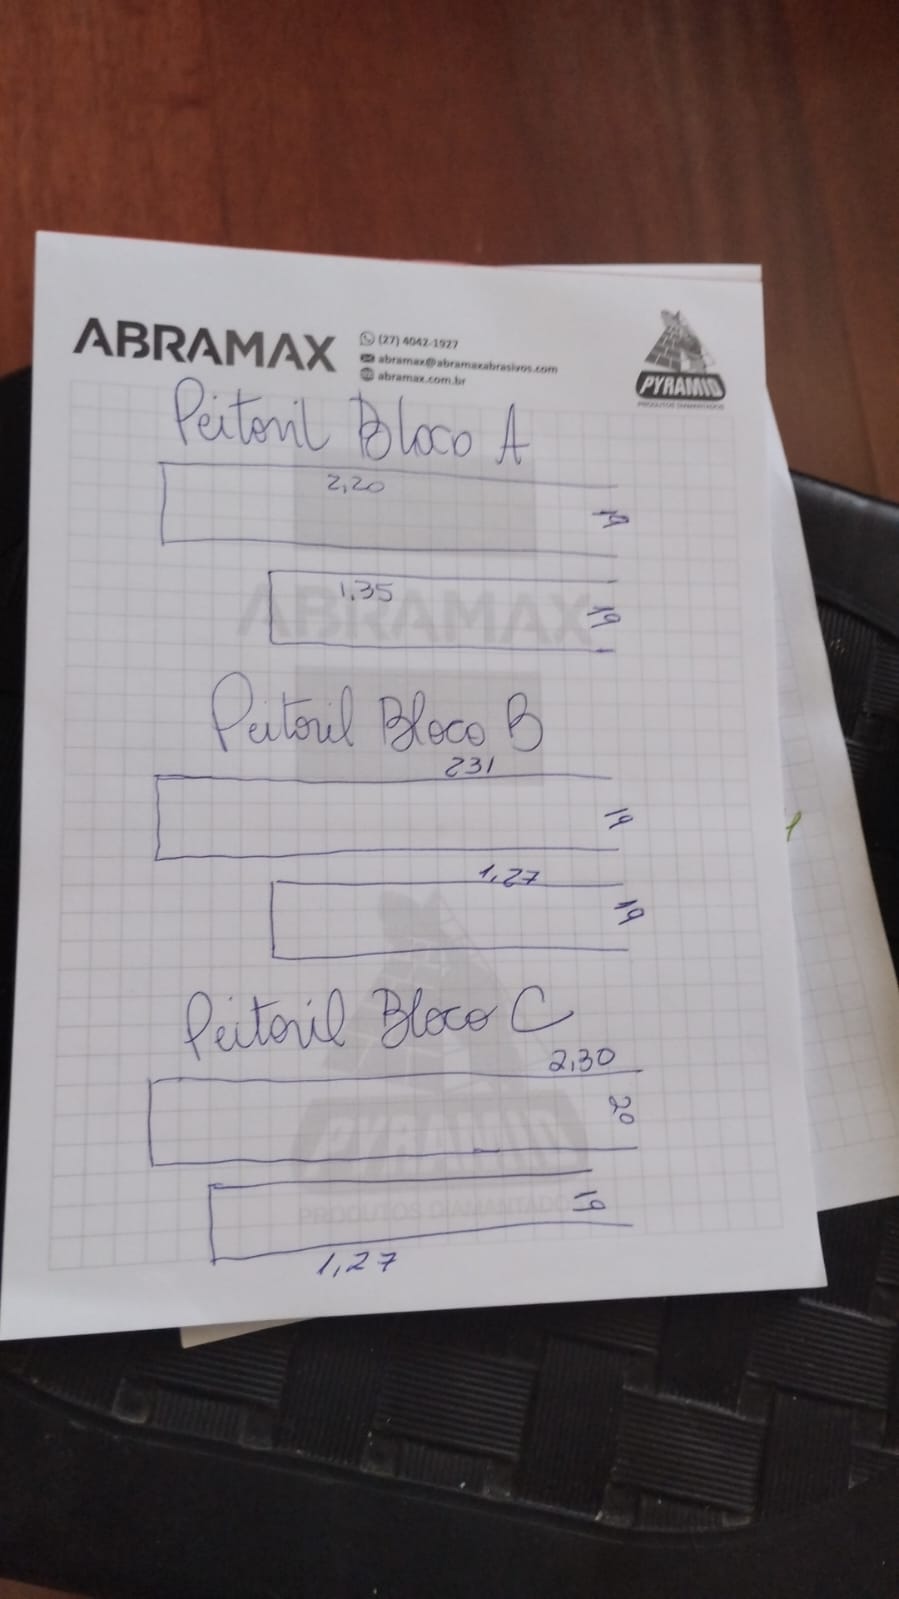 ABRAMAX
(27) 4042-1927
abramax@abramaxabrasivos.com
abramax.com.br
PYRAMID
PRODUTOS DIAMANTADOS
Peitoril Bloco A
2,20
19
1,35
19
ABRAMAX
Peitoril Bloco B
231
19
1,27
19
Peitoril Bloco C
2,30
20
PYRAMID
19
PRODUTOS DIAMANTADOS
1,27